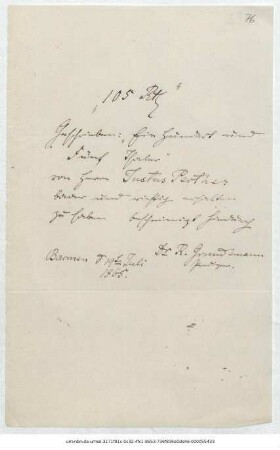 76
"105 Rtl"
Geschrieben: "Ein Hundert und
Fünf Thaler"
von Herrn Justus Perthes
baar und richtig erhalten
zu haben bescheinigt hiedurch
Barmen d 19ten Juli Dr. R. Grundemann
1865.